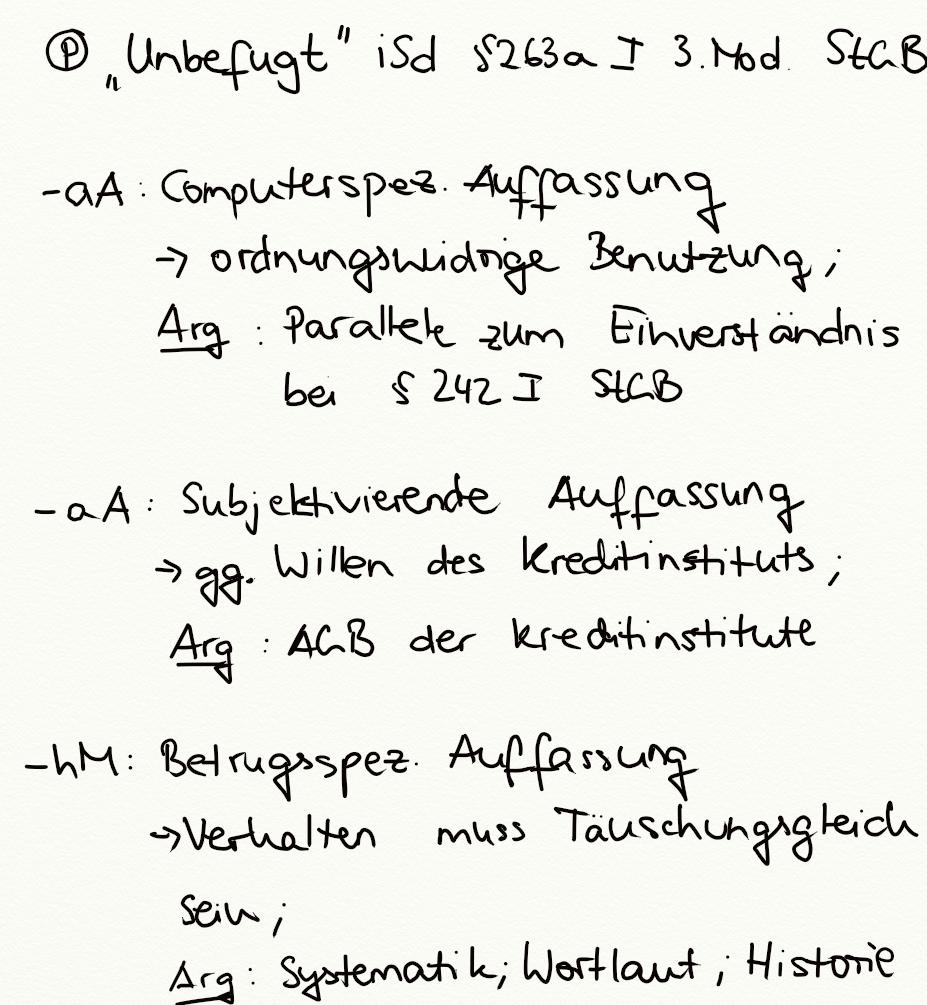 Ⓟ „Unbefugt" iSd §263a I 3.Mod. StGB
-aA: Computerspez. Auffassung
→ ordnungswidrige Benutzung;
Arg: Parallele zum Einverständnis
bei § 242 I StGB
-aA: Subjektivierende Auffassung
→ gg. Willen des Kreditinstituts;
Arg: AGB der Kreditinstitute
-hM: Betrugsspez. Auffassung
→Verhalten muss Täuschungsgleich
sein;
Arg: Systematik; Wortlaut; Historie